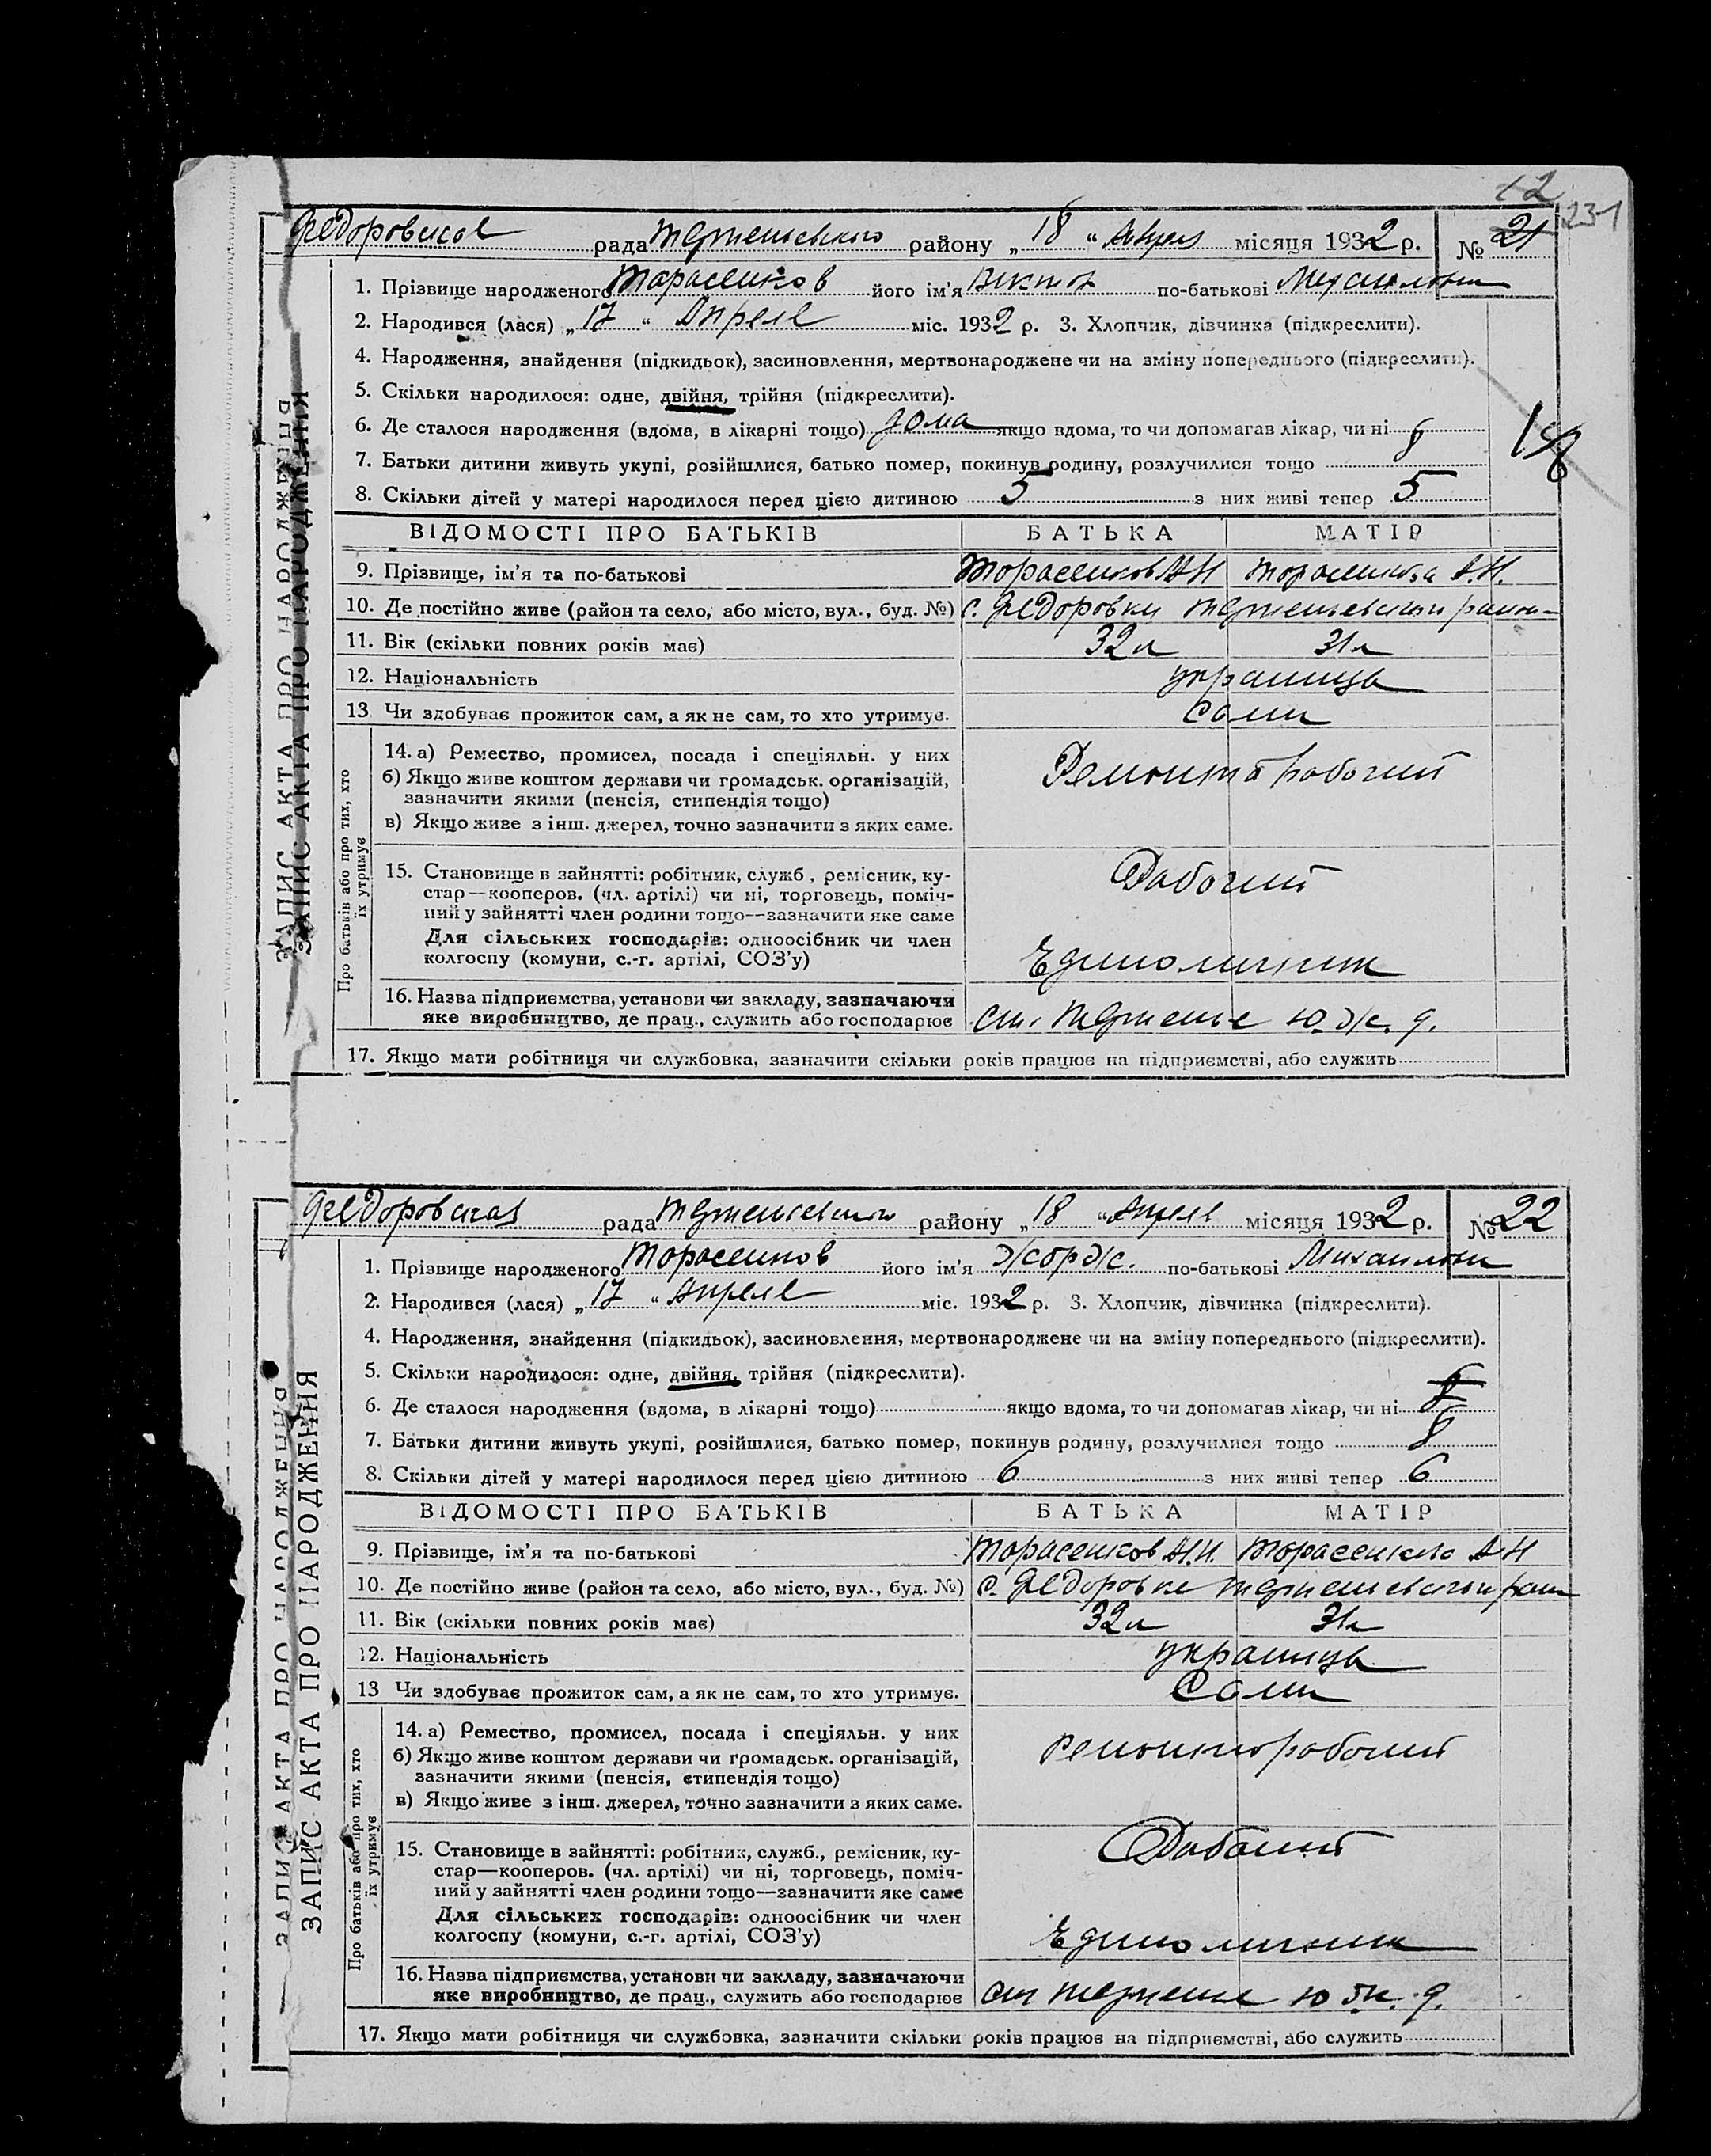 12
231
Федоровская рада района „18“ Апреля місяця 1932 р. № 21
1. Прізвище народженого Тарасенков його ім'я Виктор по-батькові
2. Народився (лася) „17“ Апреля міс. 1932 р. 3. Хлопчик, дівчинка (підкреслити).
4. Народження, знайдення (підкидьок), засиновлення, мертвонароджене чи на зміну попереднього (підкреслити).
5. Скільки народилося: одне, двійня, трійня (підкреслити).
6. Де сталося народження (вдома, в лікарні тощо) дома якщо вдома, то чи допомагав лікар, чи ні
7. Батьки дитини живуть укупі, розійшлися, батько помер, покинув родину, розлучилися тощо
8. Скільки дітей у матері народилося перед цією дитиною 5 з них живі тепер 5
ВІДОМОСТІ ПРО БАТЬКІВ БАТЬКА МАТІР
9. Прізвище, ім'я та по-батькові Тарасенков Тарасенкова
10. Де постійно живе (район та село, або місто, вул., буд. №) с. Федоровки
11. Вік (скільки повних років має) 32 л 31 л
12. Національність украинцы
13 Чи здобуває прожиток сам, а як не сам, то хто утримує. сами
Про батьків або про тих, хто їх утримує
14. а) Ремество, промисел, посада і спеціяльн. у них
б) Якщо живе коштом держави чи громадськ. організацій,
зазначити якими (пенсія, стипендія тощо)
в) Якщо живе з інш. джерел, точно зазначити з яких саме.
рабочий
15. Становище в зайнятті: робітник, служб., ремісник, ку-
стар—кооперов. (чл. артілі) чи ні, торговець, поміч-
ний у зайнятті член родини тощо—зазначити яке саме
Рабочий
Для сільських господарів: одноосібник чи член
колгоспу (комуни, с.-г. артілі, СОЗ'у)
Единоличник
16. Назва підприємства, установи чи закладу, зазначаючи
яке виробництво, де прац., служить або господарює
ю. ж. д.
17. Якщо мати робітниця чи службовка, зазначити скільки років працює на підприємстві, або служить
ЗАПИС АКТА ПРО НАРОДЖЕННЯ
ЗАПИС АКТА ПРО НАРОДЖЕННЯ
Федоровская рада району „18“ Апреля місяця 1932 р. № 22
1. Прізвище народженого Тарасенков його ім'я по-батькові
2. Народився (лася) „17“ Апреля міс. 1932 р. 3. Хлопчик, дівчинка (підкреслити).
4. Народження, знайдення (підкидьок), засиновлення, мертвонароджене чи на зміну попереднього (підкреслити).
5. Скільки народилося: одне, двійня, трійня (підкреслити).
6. Де сталося народження (вдома, в лікарні тощо) якщо вдома, то чи допомагав лікар, чи ні
7. Батьки дитини живуть укупі, розійшлися, батько помер, покинув родину, розлучилися тощо
8. Скільки дітей у матері народилося перед цією дитиною 6 з них живі тепер 6
ВІДОМОСТІ ПРО БАТЬКІВ БАТЬКА МАТІР
9. Прізвище, ім'я та по-батькові Тарасенков Тарасенкова
10. Де постійно живе (район та село, або місто, вул., буд. №) с. Федоровке
11. Вік (скільки повних років має) 32 л 31 л
12. Національність украинцы
13 Чи здобуває прожиток сам, а як не сам, то хто утримує. Сами
Про батьків або про тих, хто їх утримує
14. а) Ремество, промисел, посада і спеціяльн. у них
б) Якщо живе коштом держави чи громадськ. організацій,
зазначити якими (пенсія, стипендія тощо)
в) Якщо живе з інш. джерел, точно зазначити з яких саме.
рабочий
15. Становище в зайнятті: робітник, служб., ремісник, ку-
стар—кооперов. (чл. артілі) чи ні, торговець, поміч-
ний у зайнятті член родини тощо—зазначити яке саме
Рабочий
Для сільських господарів: одноосібник чи член
колгоспу (комуни, с.-г. артілі, СОЗ'у)
Единоличник
16. Назва підприємства, установи чи закладу, зазначаючи
яке виробництво, де прац., служить або господарює
ю ж. д.
17. Якщо мати робітниця чи службовка, зазначити скільки років працює на підприємстві, або служить
ЗАПИС АКТА ПРО НАРОДЖЕННЯ
ЗАПИС АКТА ПРО НАРОДЖЕННЯ